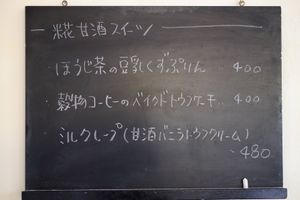 糀甘酒スイーツ
・ほうじ茶の豆乳くずぷりん ‥ 400
・穀物コーヒーのベイクドトウフケーキ ‥ 400
・ミルクレープ(甘酒バニラトウフクリーム)
‥480